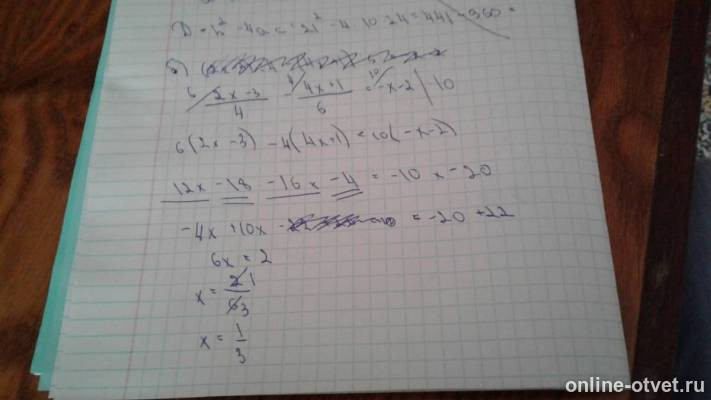 D = b² - 4ac = 21² - 4 · 10 · 24 = 441 - 960 =
б)
6 2x - 3 / 4 - 4 4x + 1 / 6 = 10 - x - 2 | 10
6(2x - 3) - 4(4x+1) = 10(-x-2)
12x - 18 - 16x - 4 = -10x - 20
-4x + 10x = -20 + 22
6x = 2
x = 2 1 / 6 3
x = 1 / 3
online-otvet.ru